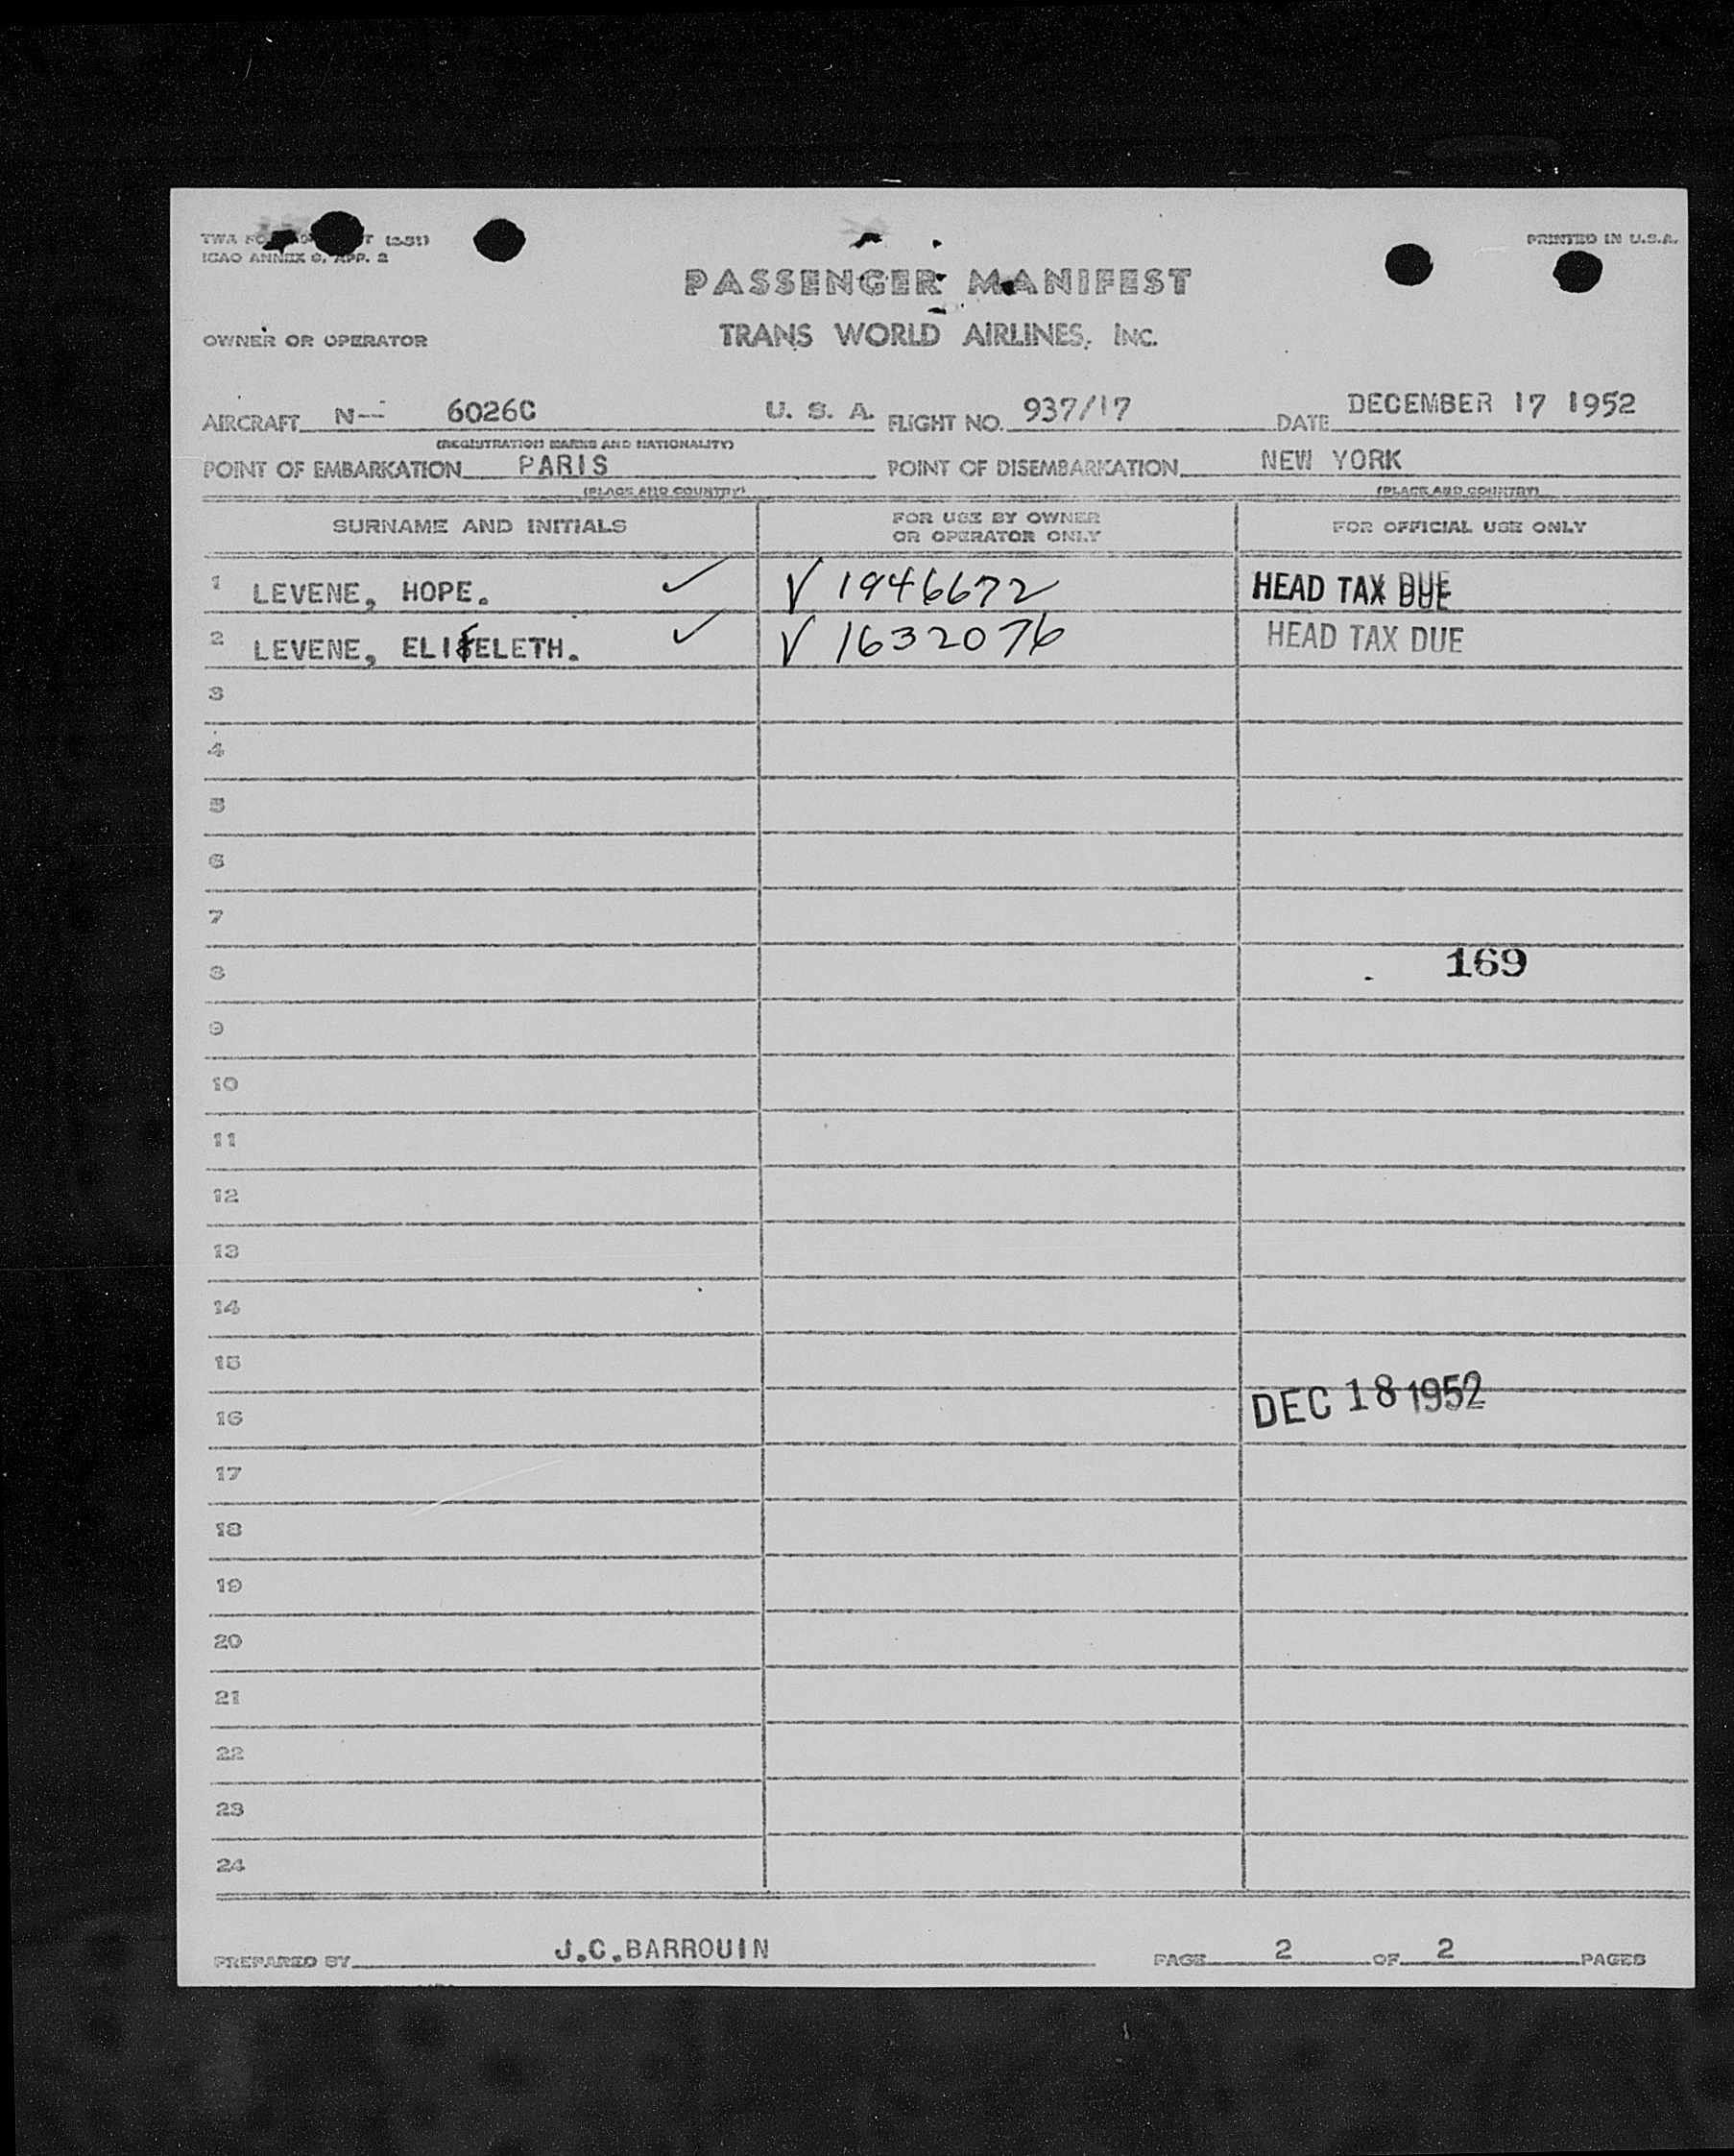 TWA FO T (3-51) PRINTED IN U.S.A.
ICAO ANNEX 9, APP. 2
PASSENGER MANIFEST
OWNER OR OPERATOR TRANS WORLD AIRLINES, INC.
AIRCRAFT N-- 6026C U. S. A. FLIGHT NO. 937/17 DATE DECEMBER 17 1952
(REGISTRATION MARKS AND NATIONALITY)
POINT OF EMBARKATION PARIS POINT OF DISEMBARKATION NEW YORK
(PLACE AND COUNTRY) (PLACE AND COUNTRY)
SURNAME AND INITIALS FOR USE BY OWNER OR OPERATOR ONLY FOR OFFICIAL USE ONLY
1 LEVENE, HOPE. ✓ V 1946672 HEAD TAX DUE
2 LEVENE, ELIFELETH. ✓ V 1632076 HEAD TAX DUE
3
4
5
6
7
8 169
9
10
11
12
13
14
15
16 DEC 18 1952
17
18
19
20
21
22
23
24
PREPARED BY J.C.BARROUIN PAGE 2 OF 2 PAGES